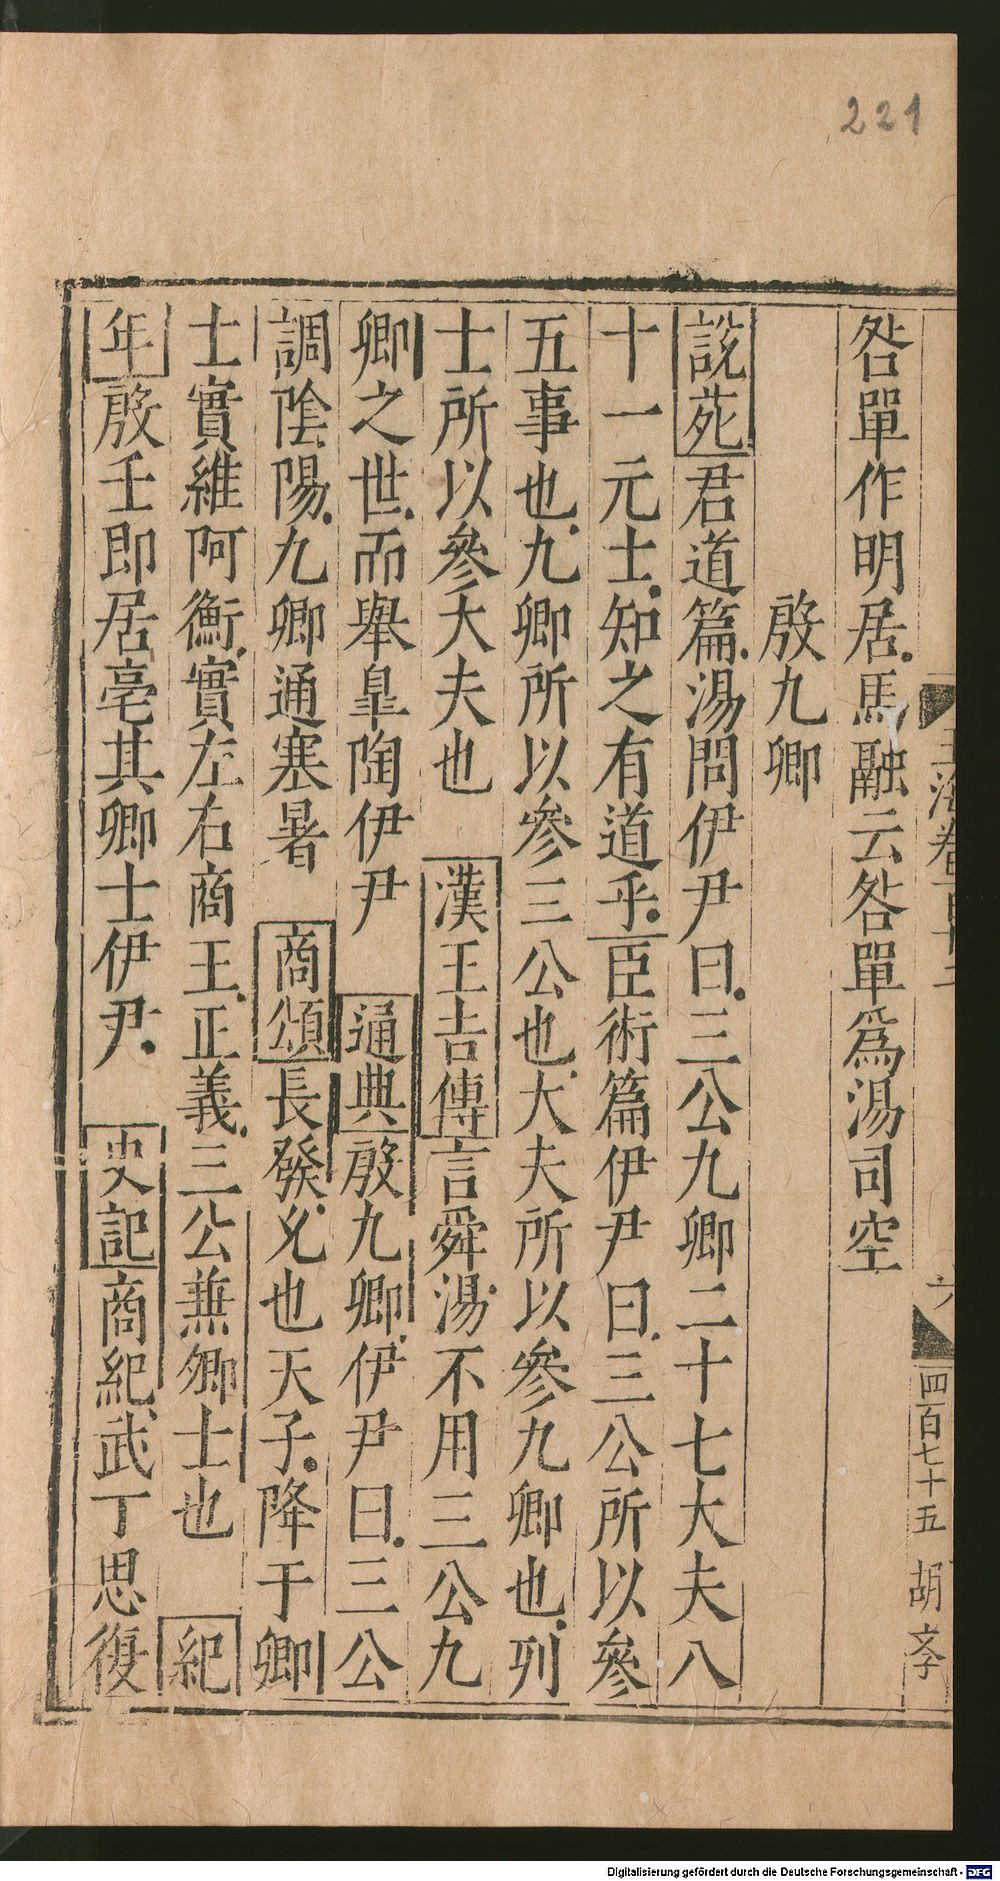 221
咎單作明居馬融云咎單爲湯司空
殷九卿
說苑君道篇湯問伊尹曰三公九卿二十七大夫八
十一元士知之有道乎臣術篇伊尹曰三公所以參
五事也九卿所以參三公也大夫所以參九卿也列
士所以參大夫也 漢王吉傳言舜湯不用三公九
卿之世而舉皐陶伊尹 通典殷九卿伊尹曰三公
調陰陽九卿通寒暑 商頌長發允也天子降于卿
士實維阿衡實左右商王正義三公兼卿士也 紀
年殷壬即居亳其卿士伊尹 史記商紀武丁思復
玉海卷
六
四百七十五
胡
Digitalisierung gefördert durch die Deutsche Forschungsgemeinschaft - DFG